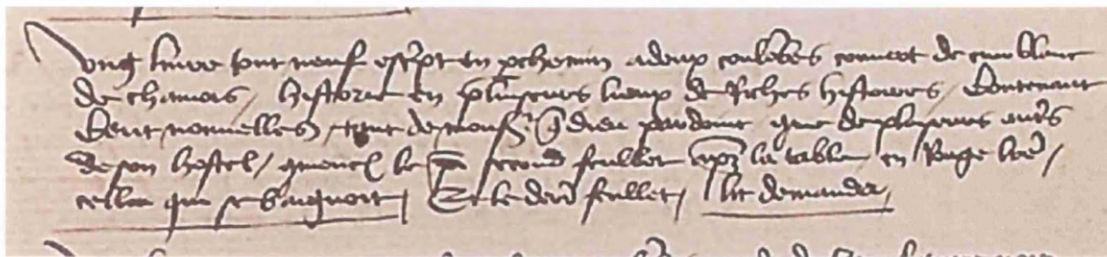 Ung livre tout neuf escript en pchemin a deux coulombes couvert de cuir blanc
de chamois / historie en plusieurs lieux de riches histoires / contenant
Cent nouvelles / tant de monsr q dieu pardonne que de plusieurs autrs
de son hostel / quencl le second feullet aps la table en rouge lre /
celluy qui se baignoit / Et le dern feullet / lit demander /